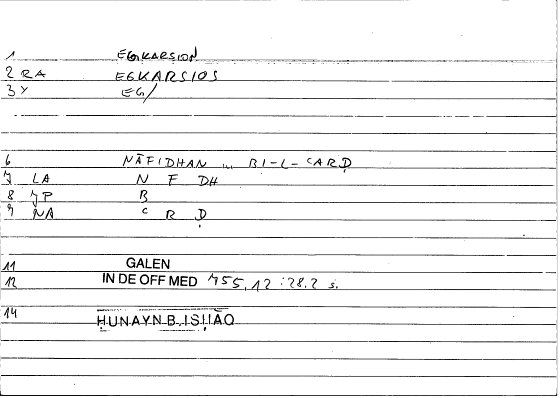 1 EGKARSION
2 RA EGKARSIOS
3 Y EG/
6 NĀFIDHAN ... BI-L-ʿARḌ
7 LA N F DH
8 JP B
9 NA ʿ R Ḍ
11 GALEN
12 IN DE OFF MED 755,12 : 28.2 s.
14 ḤUNAYN B. ISḤĀQ